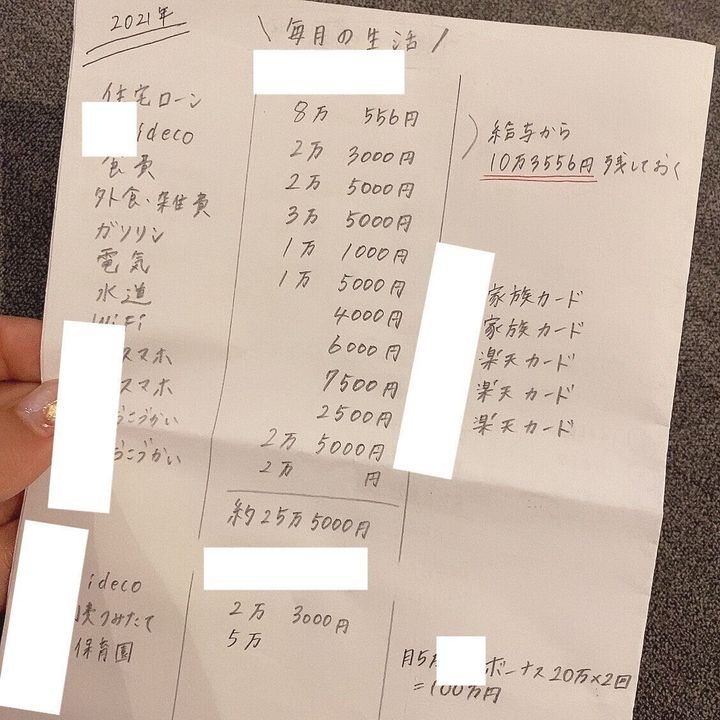 2021年
\ 毎月の生活 /
住宅ローン 8万 556円
ideco 2万 3000円
給与から
10万3556円 残しておく
食費 2万 5000円
外食・ 3万 5000円
ガソリン 1万 1000円
電気 1万 5000円 家族カード
水道 4000円 家族カード
WiFi 6000円 楽天カード
スマホ 7500円 楽天カード
スマホ 2500円 楽天カード
こづかい 2万 5000円
こづかい 2万 円
約25万5000円
ideco 2万 3000円
つみたて 5万
保育園
月5 ボーナス20万×2回
=100万円